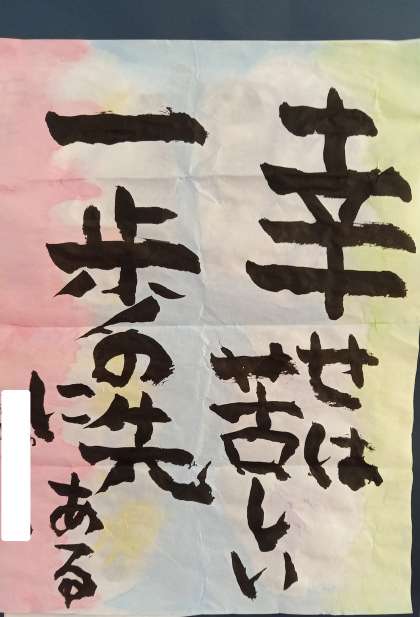 幸せは
苦しい
一歩の先
にある